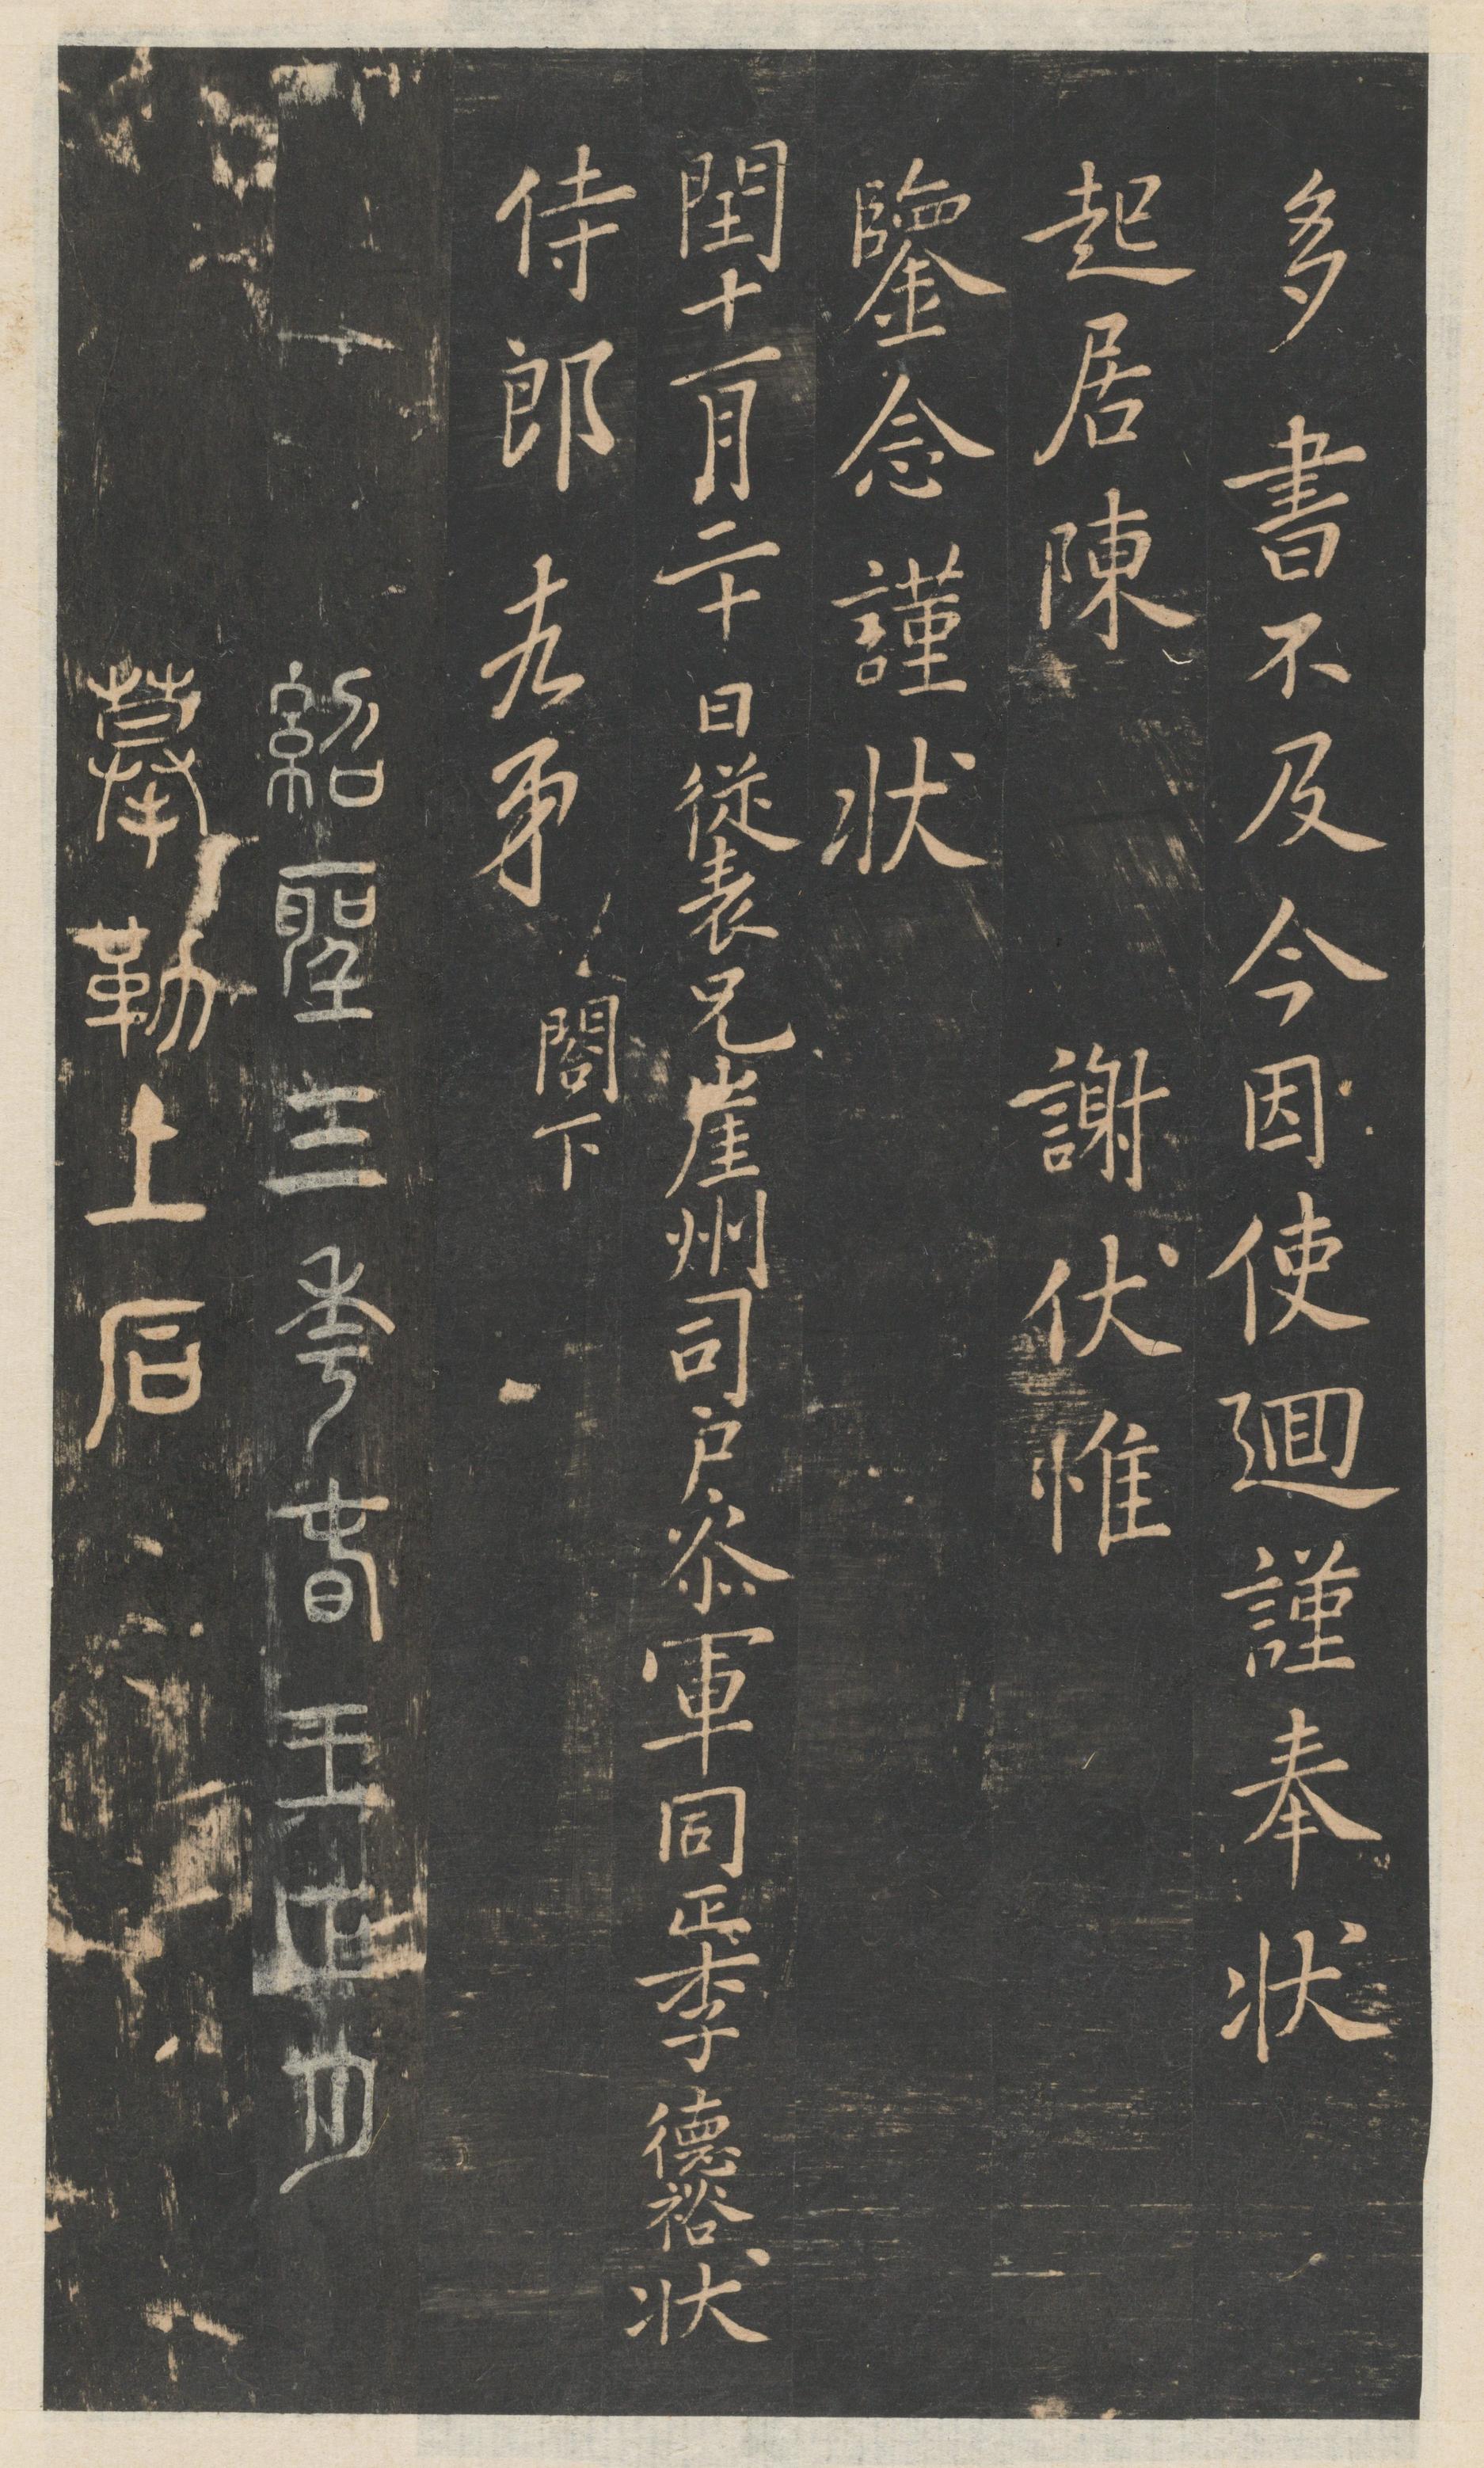 多書不及今因使廻謹奉状
起居陳 謝伏惟
鑒念謹状
閏十一月二十日従表兄崖州司户叅軍同正李德裕状
侍郎十九弟 閤下
紹聖三年春王正月
摹勒上石